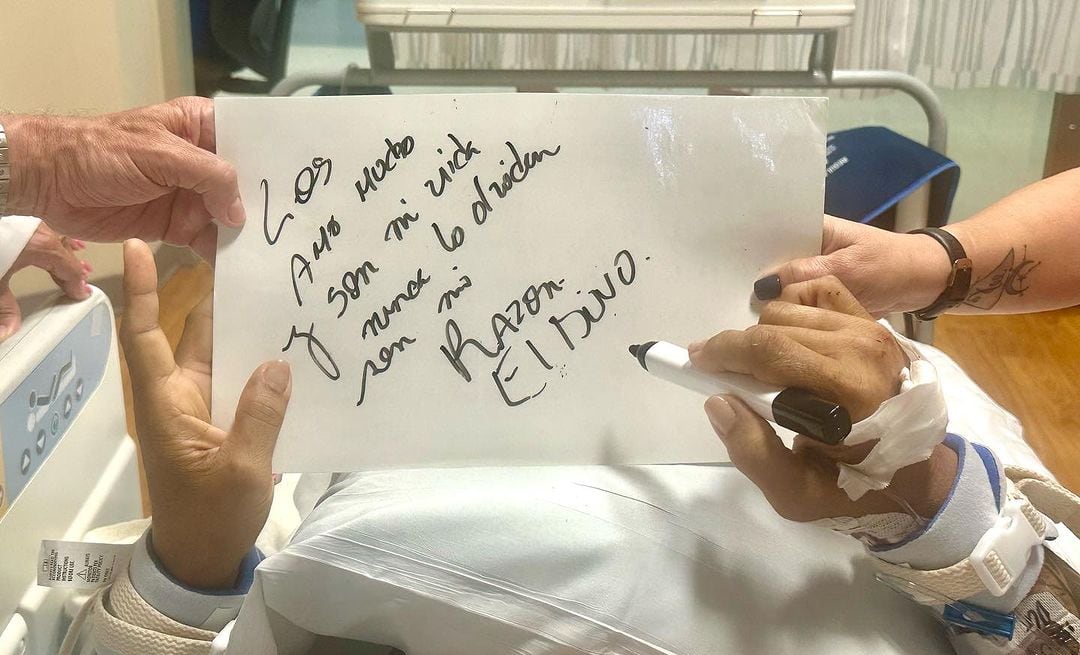 Los
Amo mucho
y son mi vida
nunca lo olviden
son mi
RAZON.
El DiVO.